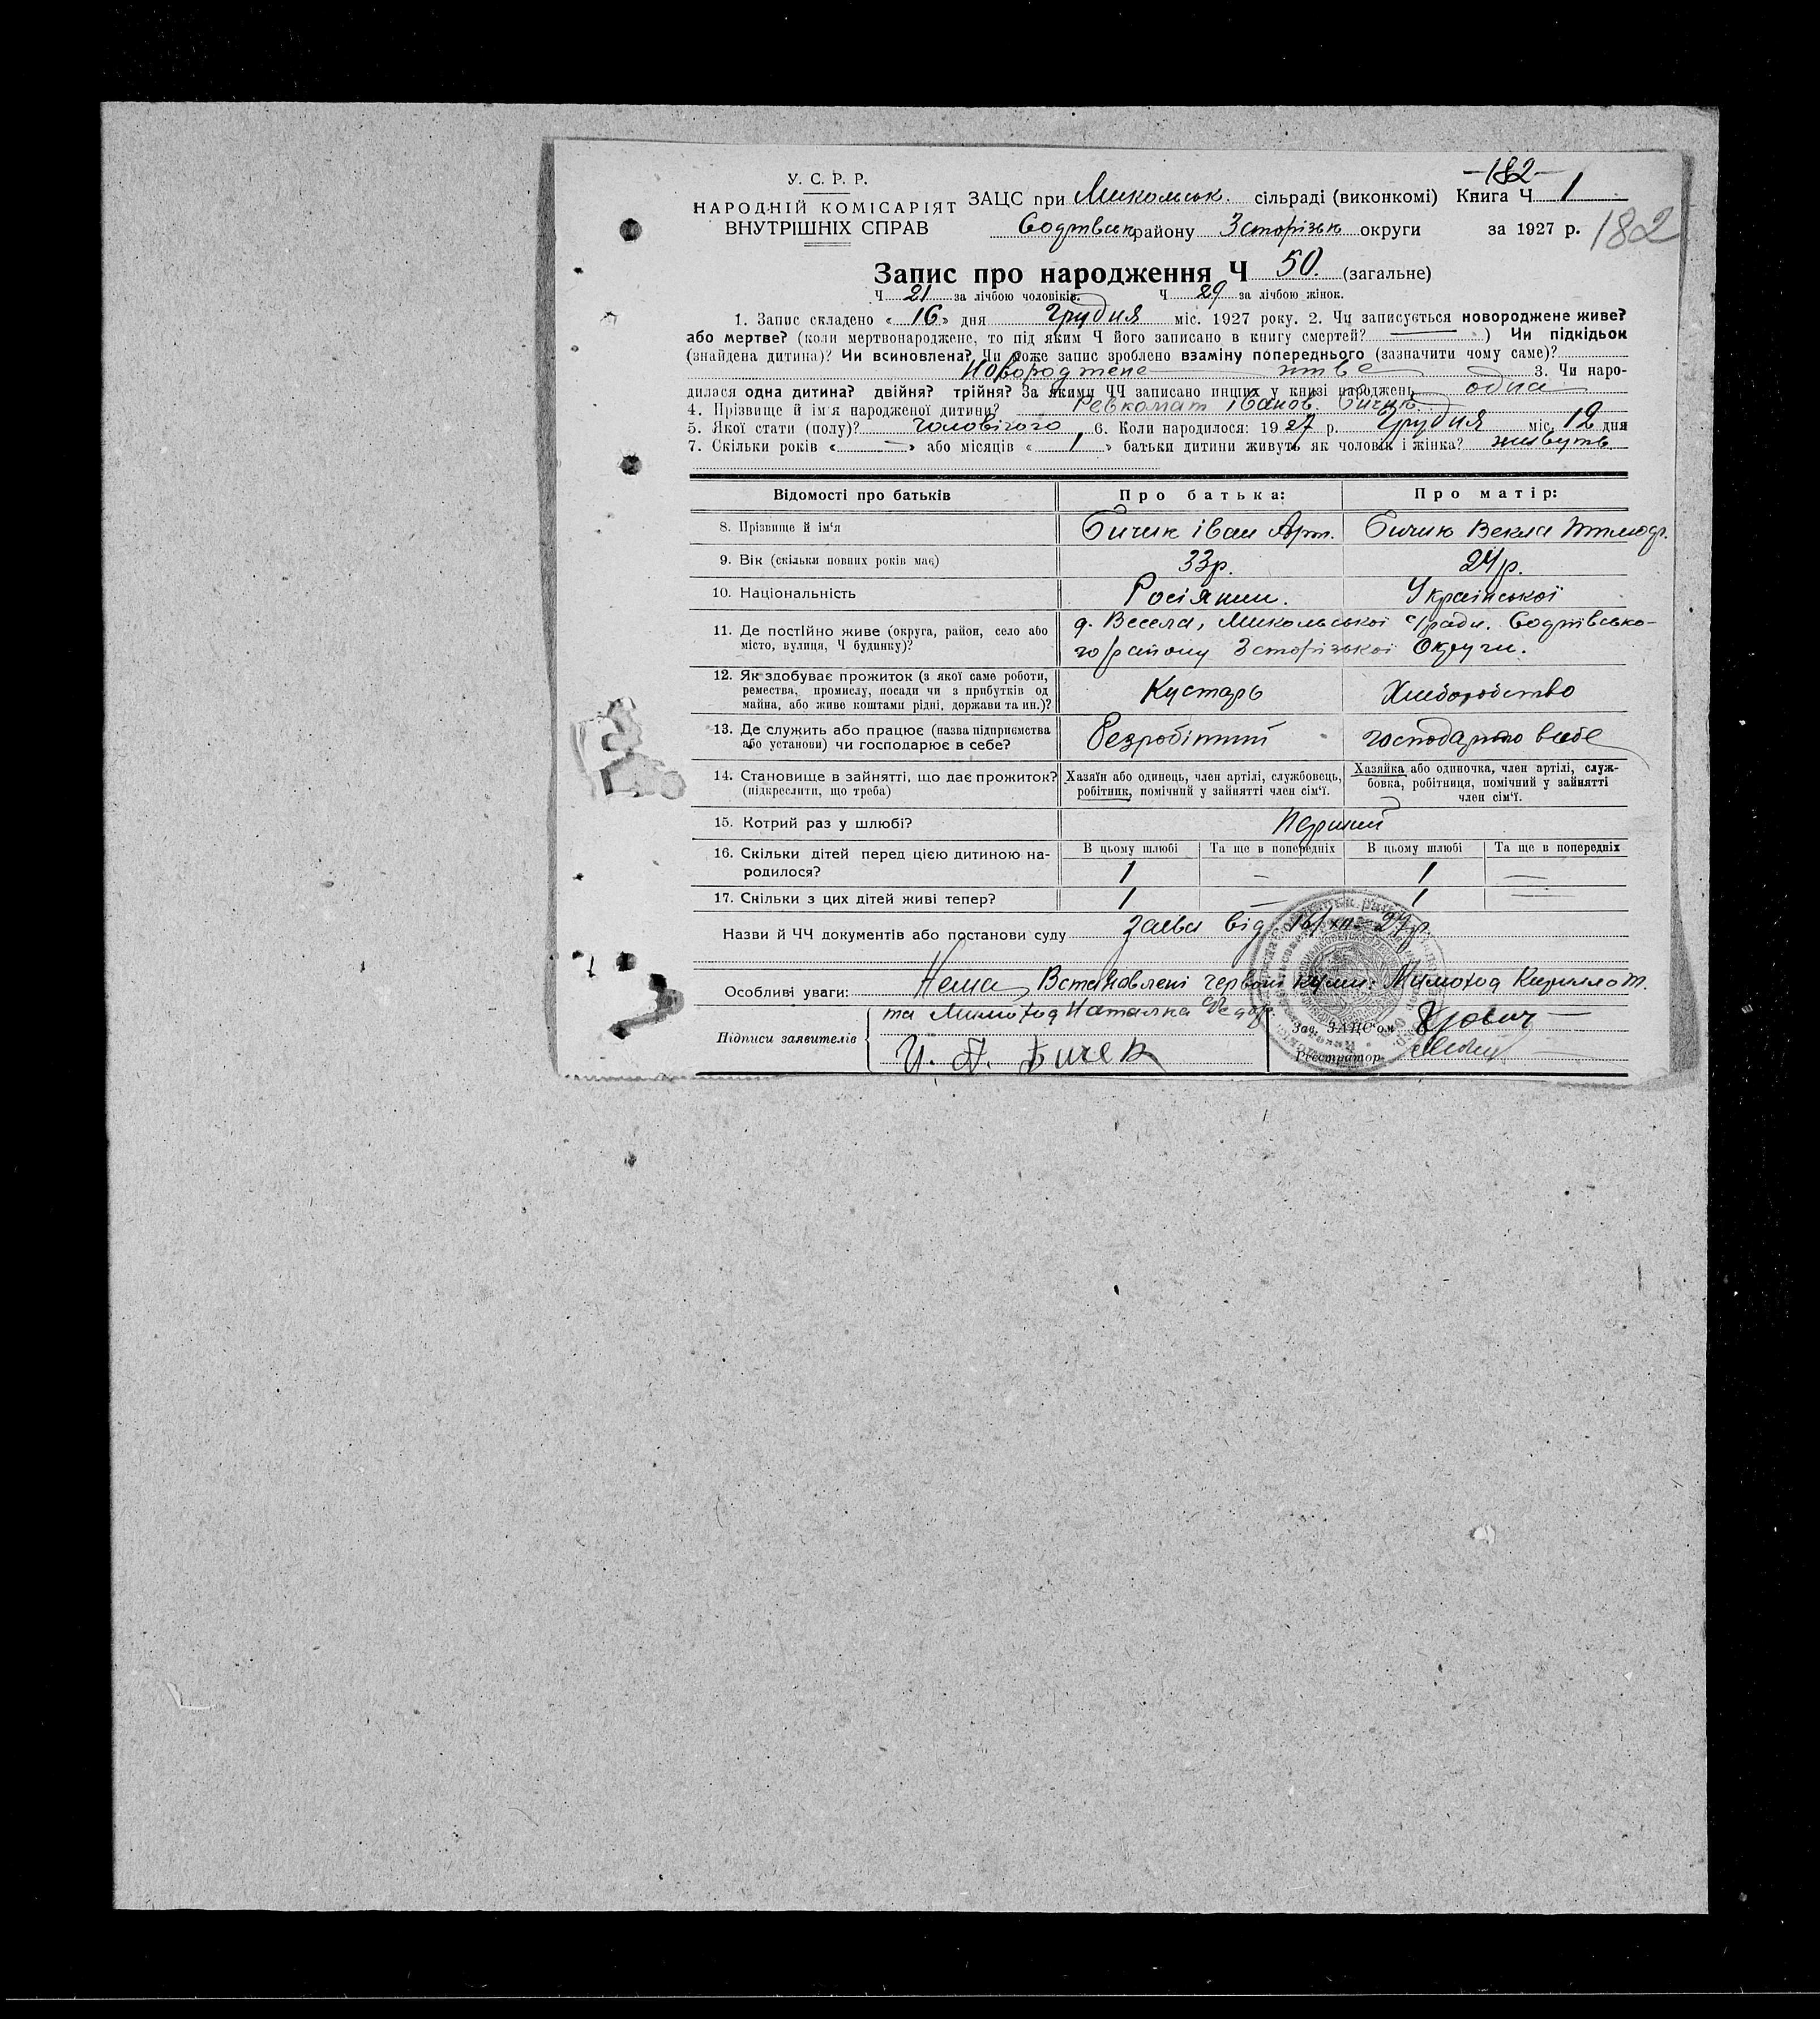 -182-
У. С. Р. Р.
НАРОДНІЙ КОМІСАРІЯТ
ВНУТРІШНІХ СПРАВ
ЗАЦС при Микольськ. сільраді (виконкомі) Книга Ч 1
району округи за 1927 р. 182
Запис про народження Ч 50. (загальне)
Ч 21 за лічбою чоловіків. Ч 29 за лічбою жінок.
1. Запис складено « 16 » дня Грудня міс. 1927 року. 2. Чи записується новороджене живе?
або мертве? (коли мертвонароджене, то під яким Ч його записано в книгу смертей? — ) Чи підкідьок
(знайдена дитина)? Чи всиновлена? Чи може запис зроблено взаміну попереднього (зазначити чому саме)?
Новороджене живе 3. Чи наро-
дилася одна дитина? двійня? трійня? За якими ЧЧ записано инших у книзі народжень одна
4. Прізвище й ім'я народженої дитини? Ревкомат Іванов. Бичик
5. Якої стати (полу)? Чоловічого 6. Коли народилося: 1927 р. Грудня міс. 12 дня
7. Скільки років « — » або місяців « 1 » батьки дитини живуть як чоловік і жінка? живуть
Відомості про батьків Про батька: Про матір:
8. Прізвище й ім'я Бичик Іван Арт. Бичик Векла
9. Вік (скільки повних років має) 33р. 24р.
10. Національність Росіянин. Української
11. Де постійно живе (округа, район, село або місто, вулиця, Ч будинку)? д. Весела, Микольської с/ради.
го району Округи.
12. Як здобуває прожиток (з якої саме роботи, ремества, промислу, посади чи з прибутків од майна, або живе коштами рідні, держави та ин.)? Кустарь Хліборобство
13. Де служить або працює (назва підприємства або установи) чи господарює в себе? безробітний господарює в себе
14. Становище в зайнятті, що дає прожиток? (підкреслити, що треба) Хазяїн або одинець, член артілі, службовець, робітник, помічний у зайнятті член сім'ї. Хазяйка або одиночка, член артілі, служ-
бовка, робітниця, помічний у зайнятті
член сім'ї.
15. Котрий раз у шлюбі? Перший
16. Скільки дітей перед цією дитиною на-
родилося? В цьому шлюбі Та ще в попередніх В цьому шлюбі Та ще в попередніх
1 — 1 —
17. Скільки з цих дітей живі тепер? 1 — 1 —
Назви й ЧЧ документів або постанови суду заява від 16/XII-27р.
Особливі уваги: Нема, Встановлені червоні куми: Мимоход Кирилло Т.
та Мимоход Наталка Федор.
Підписи заявителів И. А. Бичек
Зав. ЗАЦС'ом
Реєстратор